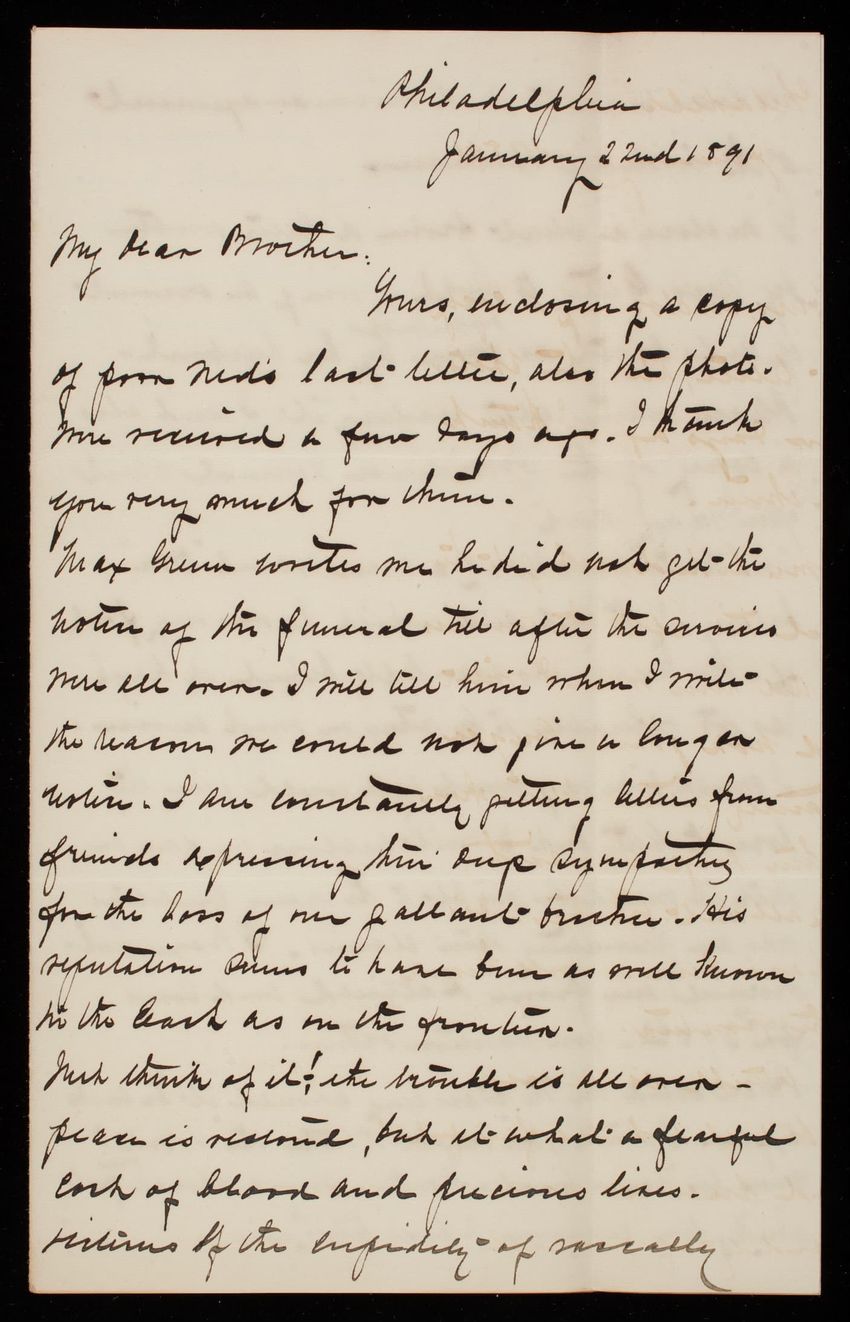 Philadelphia
January 22nd 1891
My dear Brother:
Yours, enclosing a copy
of poor Ned's last letter, also the photo.
were received a few days ago. I thank
you very much for them.
Max Green writes me he did not get the
notice of the funeral till after the services
were all over. I will tell him when I write
the reason we could not give a longer
notice. I am constantly getting letters from
friends expressing their deep sympathy
for the loss of our gallant brother. His
reputation seems to have been as well known
in the East as on the frontier.
Just think of it! the trouble is all over -
peace is restored, but at what a fearful
cost of blood and precious lives.
victims of the cupidity of rascally